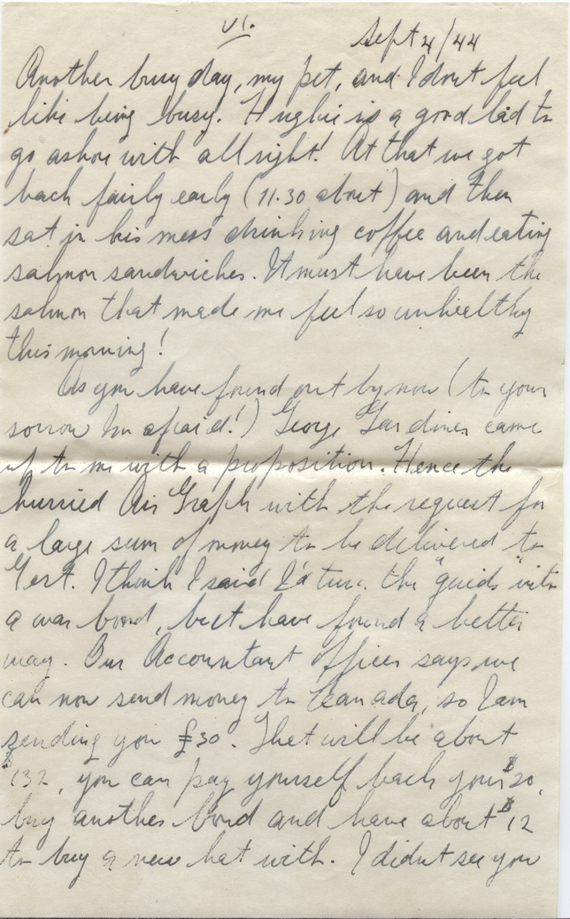 VI.
Sept 4/44
Another busy day, my pet, and I don't feel
like being busy. Hughie is a good lad to
go ashore with all right! At that we got
back fairly early (11.30 about) and then
sat in his mess drinking coffee and eating
salmon sandwiches. It must have been the
salmon that made me feel so unhealthy
this morning!
As you have found out by now (to your
sorrow I'm afraid!) George Gardiner came
up to me with a proposition. Hence the
hurried Air Graph with the request for
a large sum of money to be delivered to
Gert. I think I said I'd the "quids" with
a war bond, but have found a better
way. Our Accountant Officer says we
can now send money to Canada, so I am
sending you £30. That will be about
$132, you can pay yourself back your $20,
buy another bond and have about $12
to buy a new hat with. I didn't see you